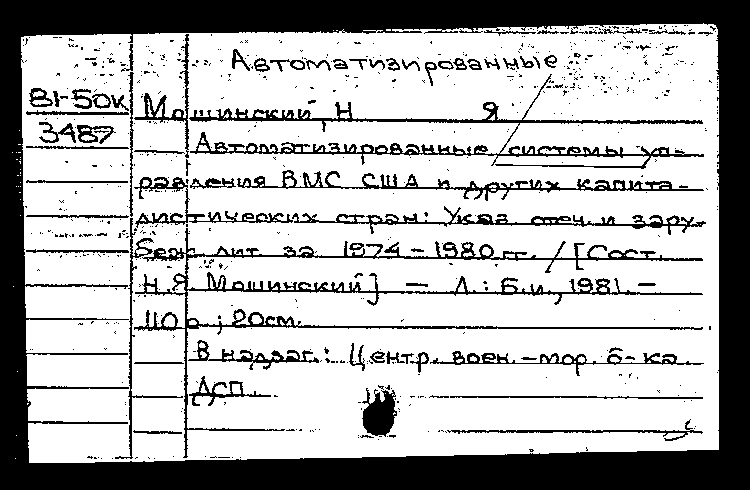 Автоматизированные
81-50к
3487
Мошинский, Н Я
Автоматизированные системы уп-
равления ВМС США и других капита-
листических стран: Указ. отеч. и зару-
беж. лит. за 1974-1980 гг. / [Сост.
Н.Я. Мошинский] — Л.: Б.и., 1981. —
110 с.; 20см.
В надзаг.: Центр. воен.-мор. б-ка.
ДСП.